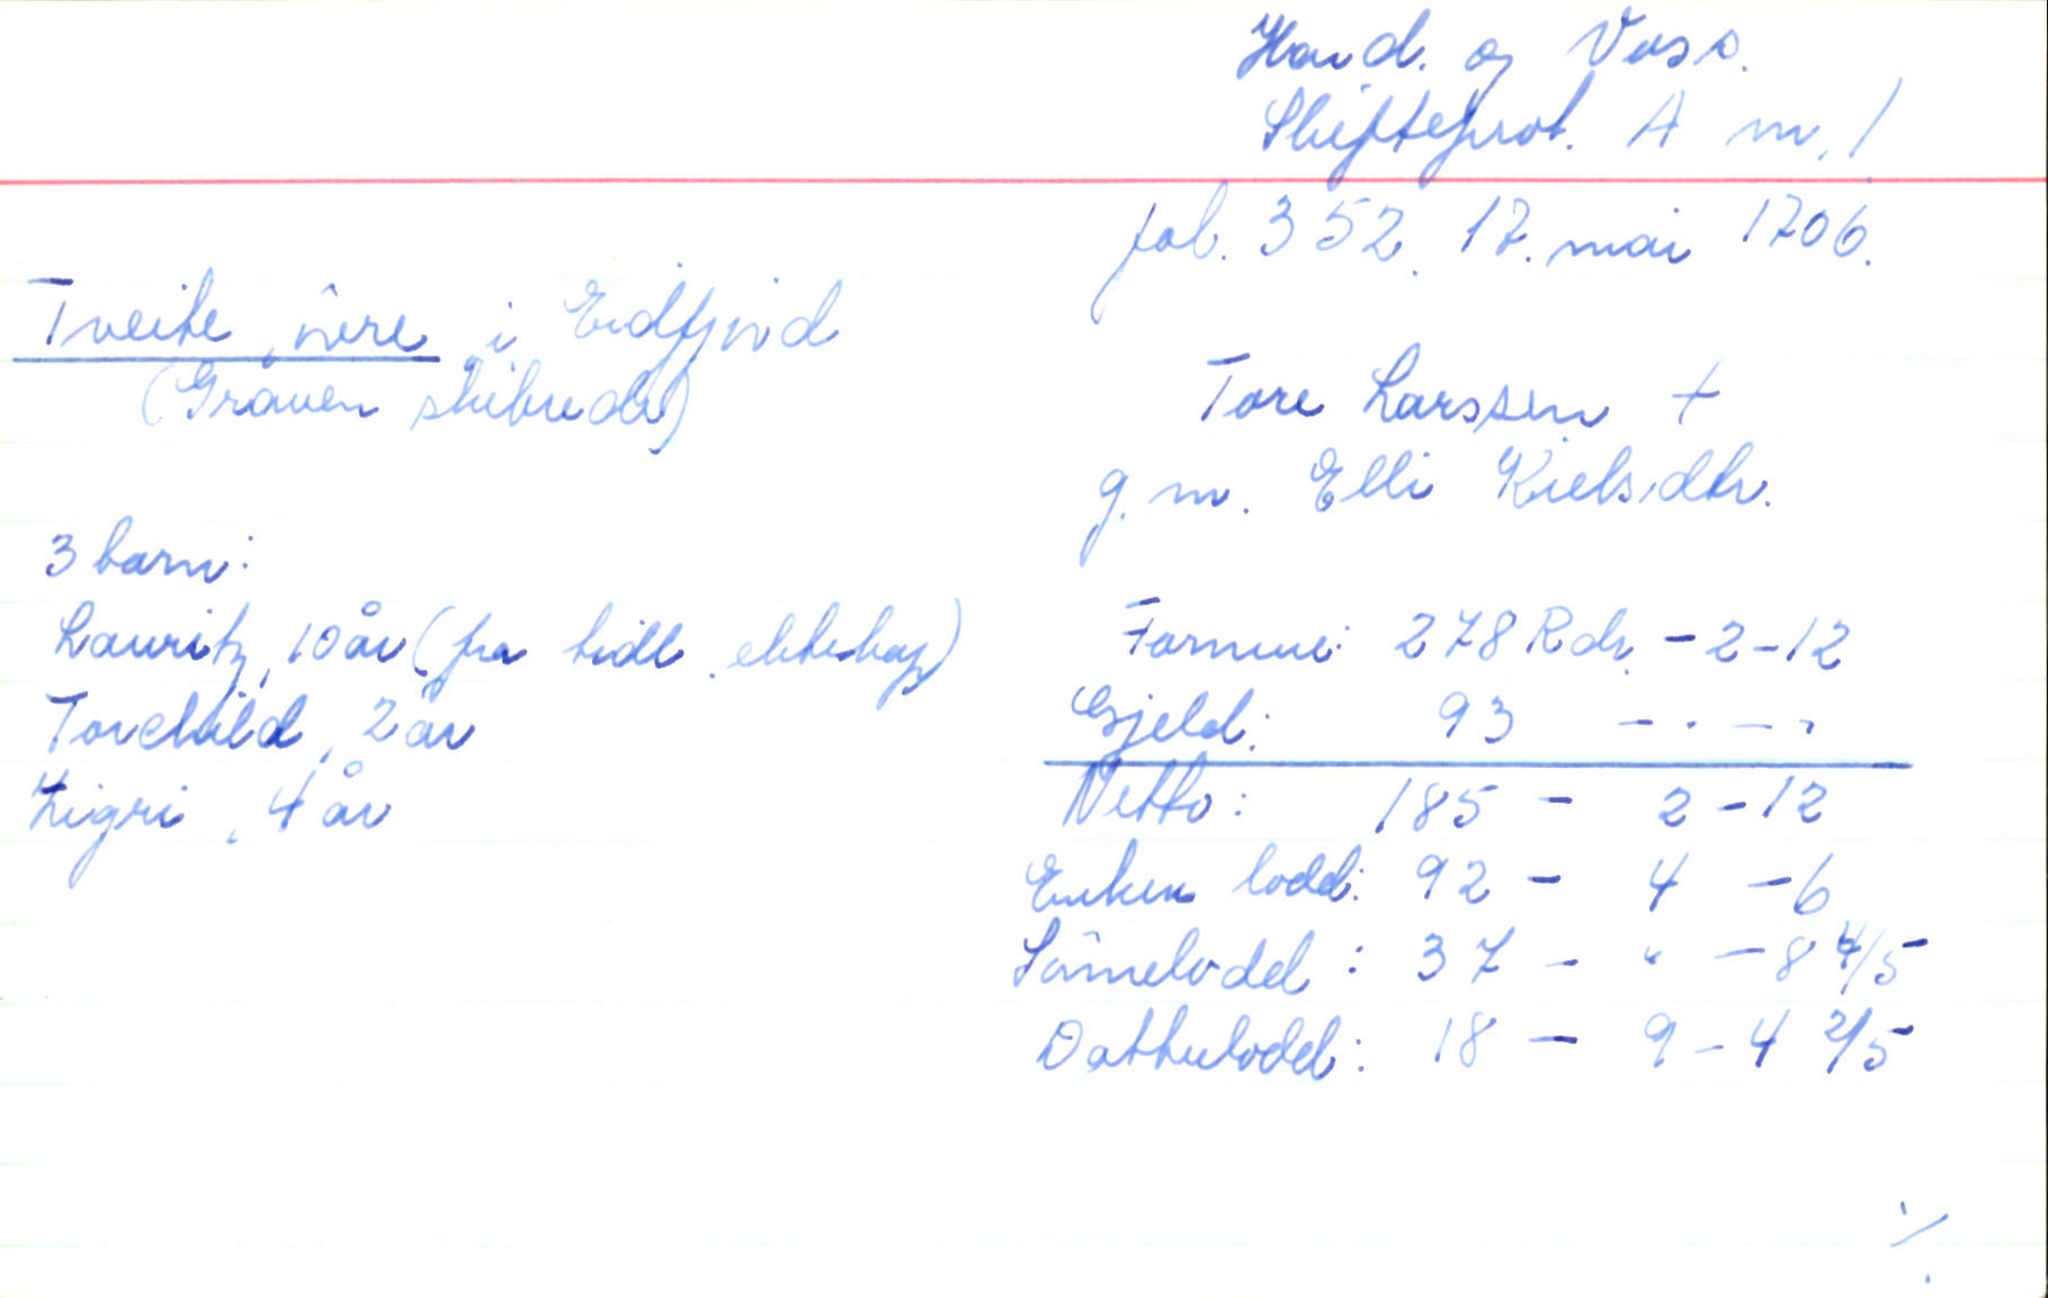 Hard. og Voss.
Skifteprot. A nr. 1
fol. 352. 17. mai 1706.
Tveite, övre i Eidfjord
(Graven skibrede)
Tore Larssen +
g. m. Elli Kielsdtr.
3 barn:
Lauritz, 10 år (fra tidl. ekteskap)
Torchild, 2 år
Zigri, 4 år
Formue: 278 Rdr. - 2 - 12
Gjeld: 93 - . - .
Netto: 185 - 2 - 12
Enken lodd: 92 - 4 - 6
Sönnelodd: 37 - " - 8 4/5
Datterlodd: 18 - 9 - 4 2/5
./.